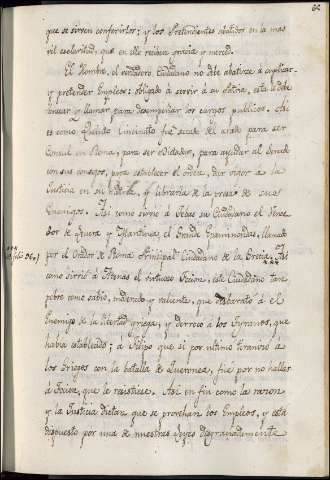 66
que se sirven conferirlos; y los Pretendientes abatidos en la mas
vil esclavitud, que en elle reciben gracia y merced.
El Hombre, el verdadero Ciudadano no debe abatirse á suplicar
y pretender Empleos: obligado a servir à su Patria, esta le debe
buscar y llamar para desempeñar los cargos publicos. Asi
es como Quinto Cincinato fue sacado del arado para ser
Consul en Roma, para ser Dictador, para ayudar al Senado
con sus consejos, para establecer el orden, dar vigor a la
Justicia en su Patria, y librarla de la presa de sus
Enemigos. Asi como sirvió á Tebas su Ciudadano el Vence-
dor de Leuctra y Mantinea, el Grande Epaminondas, llamado
por el Orador de Roma Principal Ciudadano de la Grecia. Asi
como sirvió á Atenas el virtuoso Focion, este Ciudadano tan
pobre como sabio, moderado y valiente, que desbarató a el
Enemigo de la libertad griega, y derroco a los Tyranos, que
habia establecido; a Filipo que si por ultimo tiranizo a
los Griegos con la batalla de Queronea, fue por no hallar
á Focion, que le resistiese. Asi en fin como la razon
y la Justicia dictan que se provehan los Empleos, y está
dispuesto por una de nuestras Leyes desgraciadamente